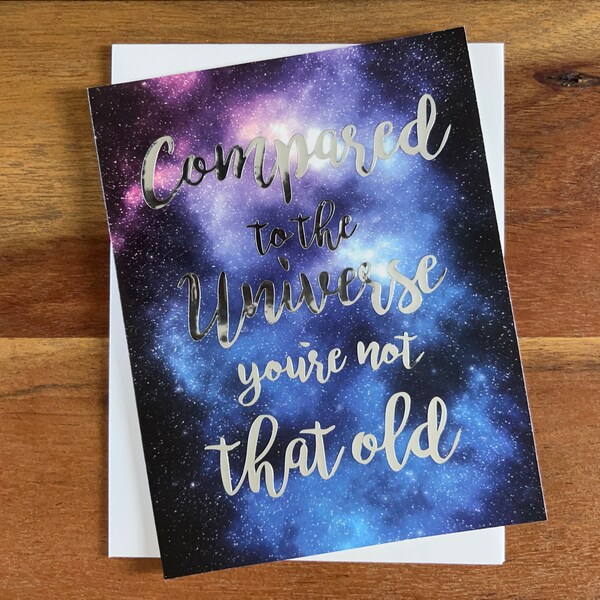 Compared
to the
Universe
you're not
that old